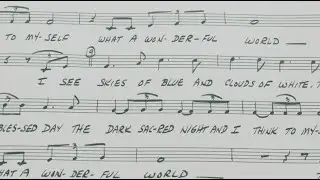 TO MY-SELF WHAT A WON-DER-FUL WORLD
I SEE SKIES OF BLUE AND CLOUDS OF WHITE.
BLES-SED DAY THE DARK SAC-RED NIGHT AND I THINK TO MY-
WHAT A WON-DER-FUL WORLD